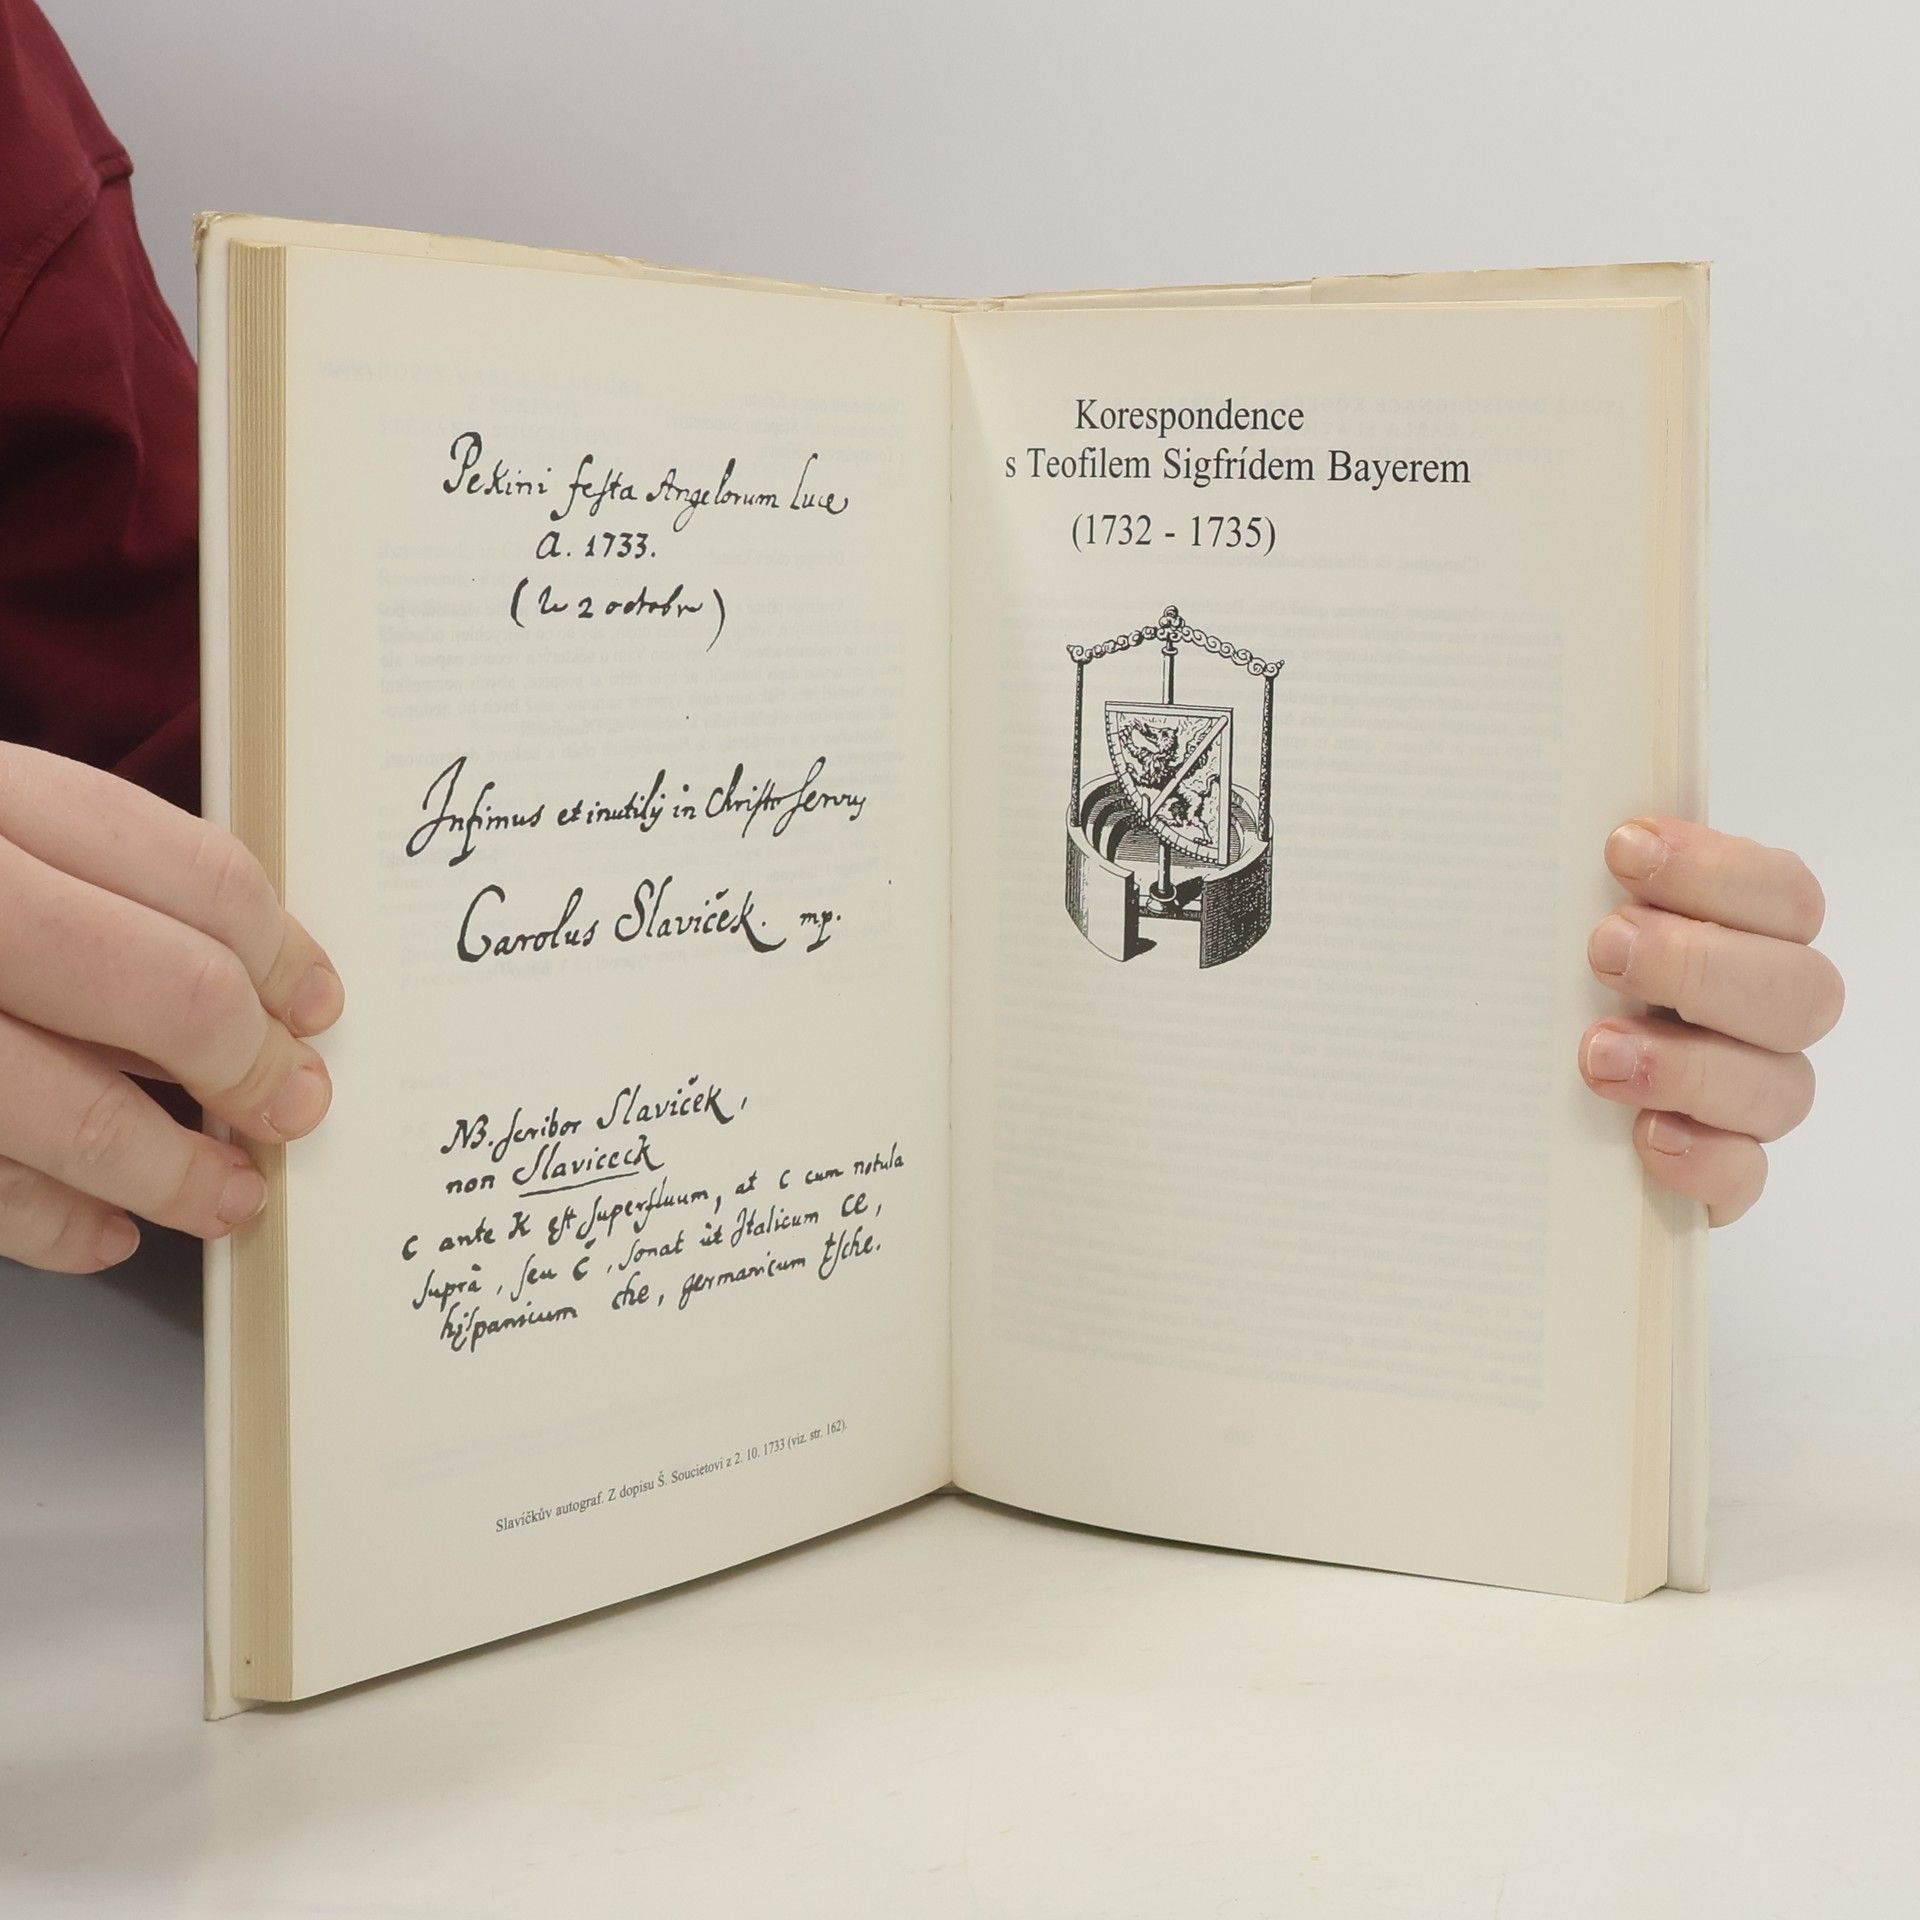 Pekini festa Angelorum luce
A. 1733.
(le 2 octobre)
Infimus et inutilis in Christo servus
Carolus Slaviček. mp.
NB. scribor Slaviček,
non Slaviceck
c ante k est superfluum, at c cum notula
suprà, seu č, sonat ùt Italicum ce,
hispanicum che, germanicum tsche.
Slavíčkův autograf. Z dopisu Š. Soucietovi z 2. 10. 1733 (viz. str. 162).
Korespondence
s Teofilem Sigfrídem Bayerem
(1732 - 1735)